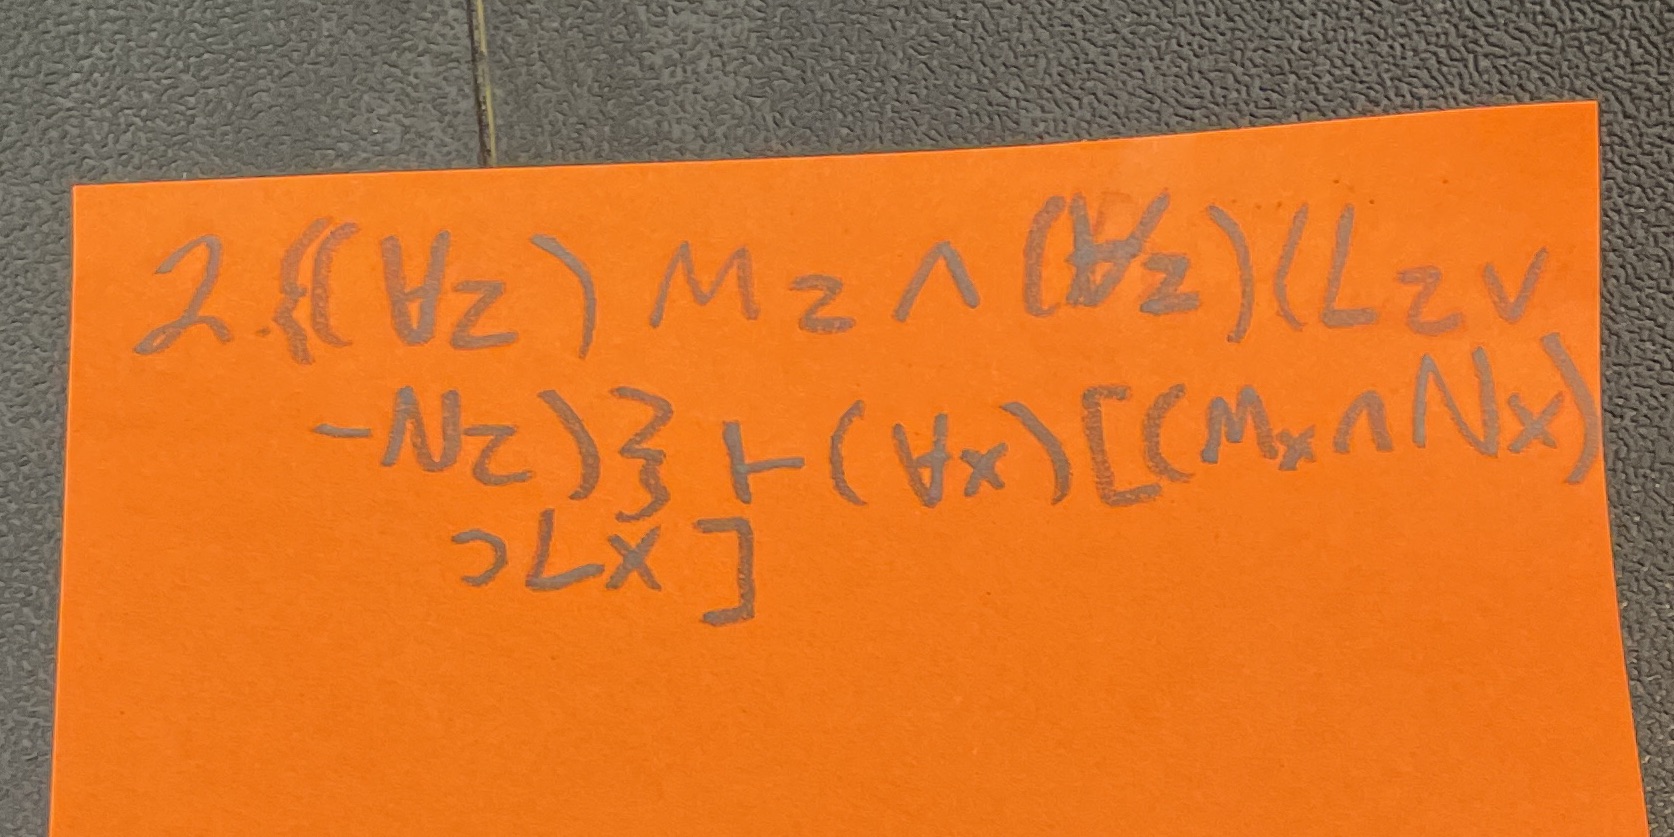 2.{(∀z) Mz ∧ (∀z)(Lz ∨
-Nz)} ⊢ (∀x)[(Mx ∧ Nx)
⊃ Lx]